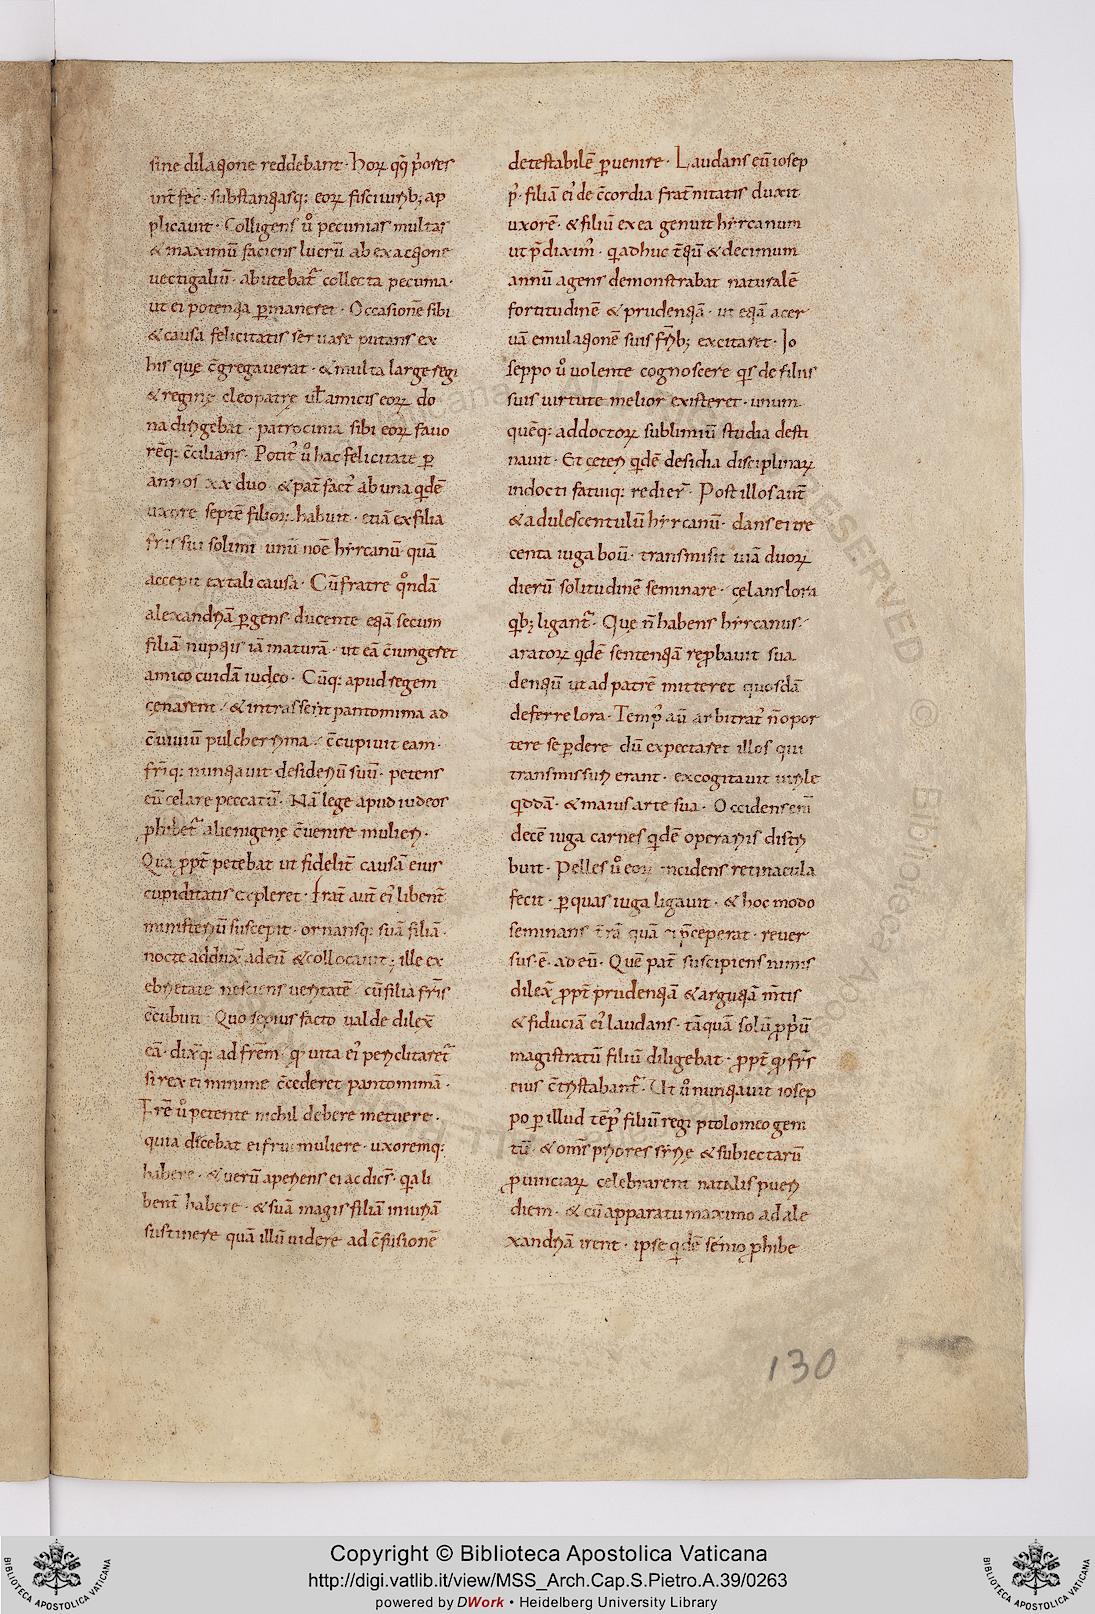 sine dilatione reddebant · horꝝ qq̨ p̄ores
int̄ fec̄ · substantiasq; eorꝝ fisci iurib; ap
plicauit · Colligens ū̊ pecunias multas
& maximū faciens lucrū ab exactione
uectigaliū · abutebat᷑ collecta pecunia ·
ut ei potentia ꝑmaneret · Occasionē sibi
& causā felicitatis seruare putans ex
his quę c̄gregauerat · & multa large regi
& reginę cleopatrę ul̄ amicis eorꝝ do
na dirigebat · patrocinia sibi eorꝝ fauo
rēq; c̄cilians · Potit᷑ ū̊ hac felicitate ꝑ
annos xx duo · & pat̄ fact᷑ ab una qͥdē
uxore septē filiorꝝ habuit · etiā ex filia
fr̄is sui solimi unū noē hyrcanū · quā
accepit ex tali causa · Cū fratre qͦndā
alexandriā ꝑgens · ducente eqā secum
filiā nuptiis iā maturā · ut eā c̄iungeret
amico cuidā iudęo · Cūq; apud regem
cęnarent · & intrasset pantomima ad
c̄uiuiū pulcherrima · c̄cupiuit eam ·
fr̄iq; nuntiauit desideriū suū · petens
eū celare peccatū · Nā lege apud iudeos
ꝓhibet᷑ alienigenę c̄uenire mulieri ·
Qua ꝓpt̄ petebat ut fidelit̄ causā eius
cupiditatis expleret · Frat̄ aut̄ ei᷑ libent̄
ministeriū suscepit · ornansq; suā filiā ·
nocte adduxͭ ad eū & collocauit ; ille ex
ebrietate nesciens ueritatē · cū filia fr̄is
c̄cubuit · Quo sepius facto ualde dilexͭ
eā · dixͭq; ad fr̄em · qͥ uita ei᷑ periclitaret᷑
si rex ei minime c̄cederet pantomimā ·
Fr̄e ū̊ petente nichil debere metuere ·
quia dicebat ei frui muliere · uxoremq;
habere · & uerū aperiens ei ac dic̄s · qͥa li
bent̄ habere · & suā magis filiā iniuriā
sustinere quā illū uidere ad c̄fusionē
detestabilē ꝑuenire · Laudans eū iosep
p᷑ · filiā ei᷑ de c̄cordia frat̄nitatis duxit
uxorē · & filiū ex ea genuit hyrcanum
ut p̄dixim᷑ · qͥ adhuc t̄tiū & decimum
annū agens demonstrabat naturalē
fortitudinē & prudentiā · ut etiā acer
uā emulationē suis fr̄ib; excitaret · Io
seppo ū̊ uolente cognoscere qͥs de filiis
suis uirtute melior existeret · unum
quēq; ad doctorꝝ sublimiū studia desti
nauit · Et ceteri qͥdē desidia disciplinarꝝ
indocti fatuiq; redier̄ · Post illos aut̄
& adulescentulū hyrcanū · dans ei tre
centa iuga boū · transmisit uiā duorꝝ
dierū solitudinē seminare · cęlans lora
qͥb; ligant᷑ · Quę n̄ habens hyrcanus ·
aratorꝝ qͥdē sententiā reꝓbauit sua
dentiū ut ad patrē mitteret quosdā
deferre lora · Temp᷑ aū arbitrat᷑ n̄ opor
tere se ꝑdere dū expectaret illos qui
transmissuri erant · excogitauit utile
qͦddā · & maius arte sua · Occidens em̄
decē iuga carnes qͥdē operariis distri
buit · Pelles ū̊ eorꝝ incidens retinacula
fecit · ꝑ quas iuga ligauit · & hoc modo
seminans t̄rā quā ei p̄ceperat · reuer
sus ē · ad eū · Quē pat̄ suscipiens nimis
dilexͭ ꝓpt̄ prudentiā & argutiā m̄tis
& fiduciā ei᷑ laudans · tāquā solū ꝓpͥū
magistratū filiū diligebat · ꝓpt̄ qͦ fr̄s
eius c̄tristabant᷑ · Ut ū̊ nuntiauit iosep
po ꝑ illud tēp᷑ filiū regi ptolomeo geni
tū · & om̄s priores syrię & subiectarū
ꝓuinciarꝝ celebrarent natalis pueri
diem · & cū apparatu maximo ad ale
xandriā irent · ipse qͥdē senio ꝓhibe
130
Copyright © Biblioteca Apostolica Vaticana
http://digi.vatlib.it/view/MSS_Arch.Cap.S.Pietro.A.39/0263
powered by DWork • Heidelberg University Library